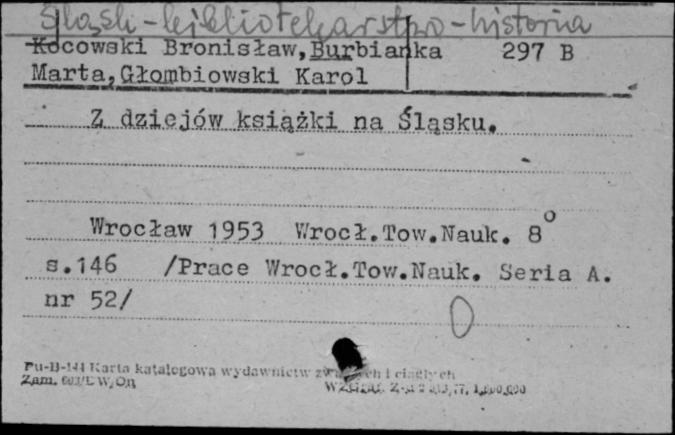 Śląsk - bibliotekarstwo - historia
Kocowski Bronisław, Burbianka 297 B
Marta, Głombiowski Karol
Z dziejów książki na Śląsku.
Wrocław 1953 Wrocł.Tow.Nauk. 8°
s.146 /Prace Wrocł.Tow.Nauk. Seria A.
nr 52/
Pu-B-144 Karta katalogowa wydawnictw i ciągłych
Zam.